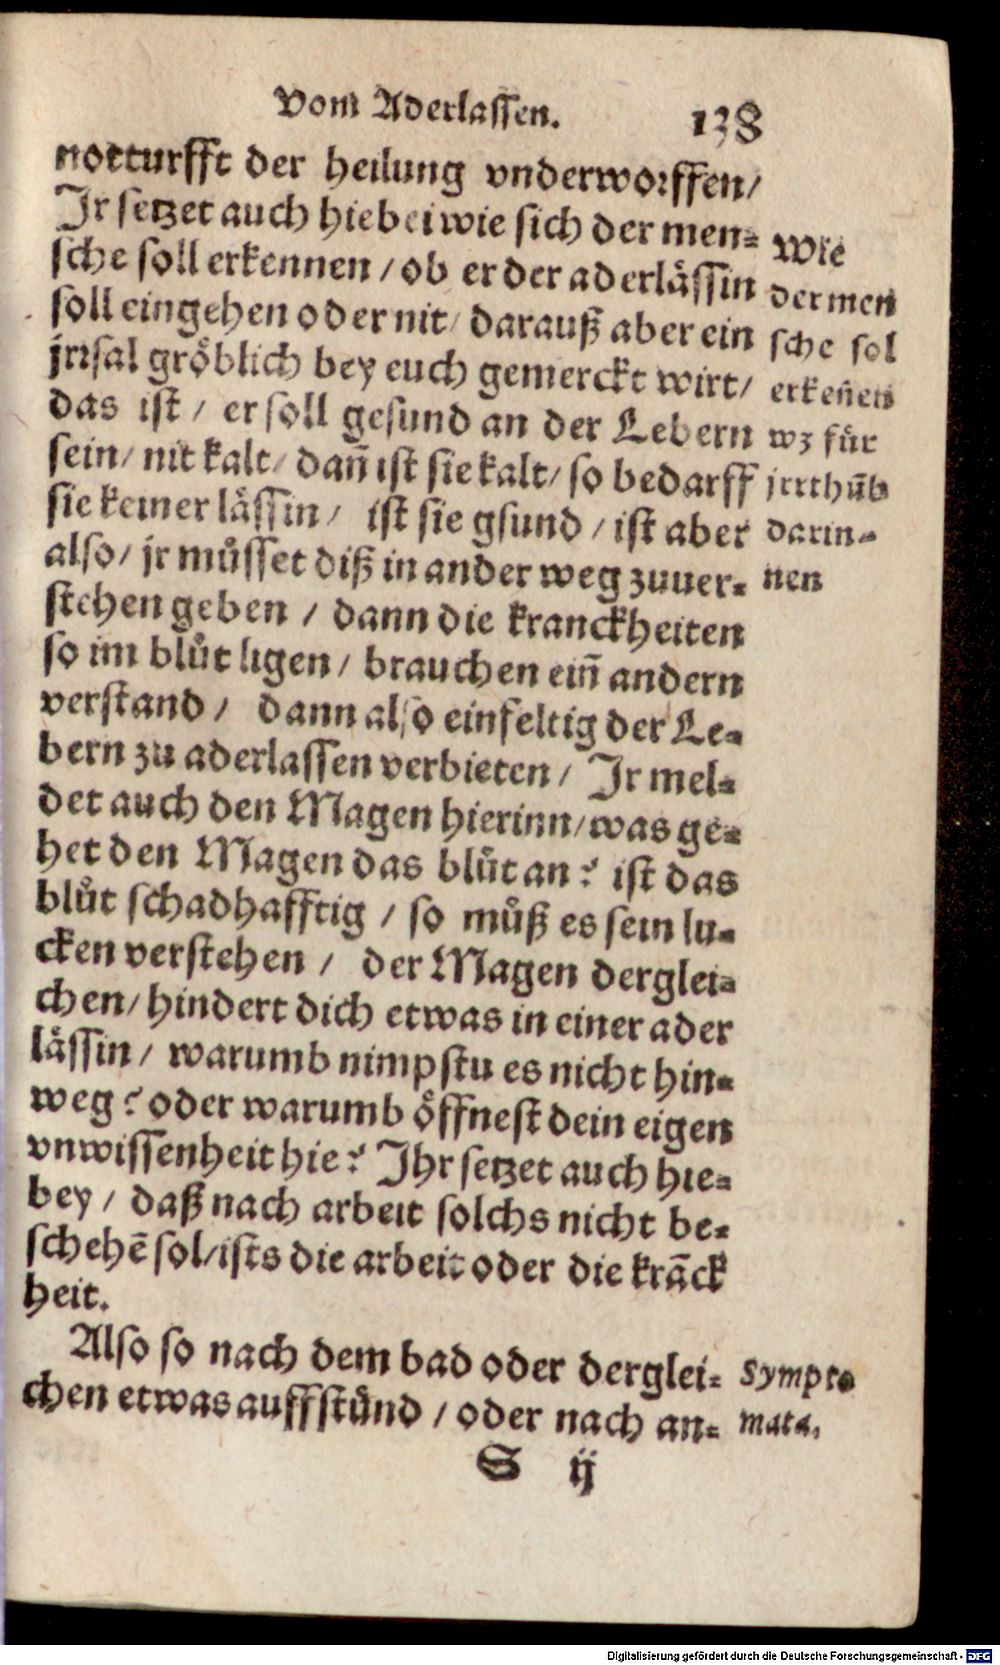 Vom Aderlassen. 138
notturfft der heilung vnderworffen/
Ir setzet auch hiebei wie sich der men-
sche soll erkennen / ob er der aderlåssin
soll eingehen oder nit/ darauß aber ein
jrrsal gröblich bey euch gemerckt wirt/
das ist / er soll gesund an der Lebern
sein/ nit kalt/ dañ ist sie kalt/ so bedarff
sie keiner låssin/ ist sie gsund / ist aber
also/ jr můsset diß in ander weg zuuer-
stehen geben / dann die kranckheiten
so im blůt ligen/ brauchen eiñ andern
verstand / dann also einfeltig der Le-
bern zu aderlassen verbieten/ Ir mel-
det auch den Magen hierinn/was ge-
het den Magen das blůt an? ist das
blůt schadhafftig / so můß es sein lu-
cken verstehen / der Magen derglei-
chen/ hindert dich etwas in einer ader
låssin/ warumb nimpstu es nicht hin-
weg? oder warumb öffnest dein eigen
vnwissenheit hie? Ihr setzet auch hie-
bey / daß nach arbeit solchs nicht be-
schehē sol/ists die arbeit oder die krāck
heit.
Also so nach dem bad oder derglei-
chen etwas auffstůnd / oder nach an-
S ij
Wie
der men
sche sol
erkeñen
wz fůr
jrrthūb
darin-
nen
Sympto
mata.
Digitalisierung gefördert durch die Deutsche Forschungsgemeinschaft - DFG